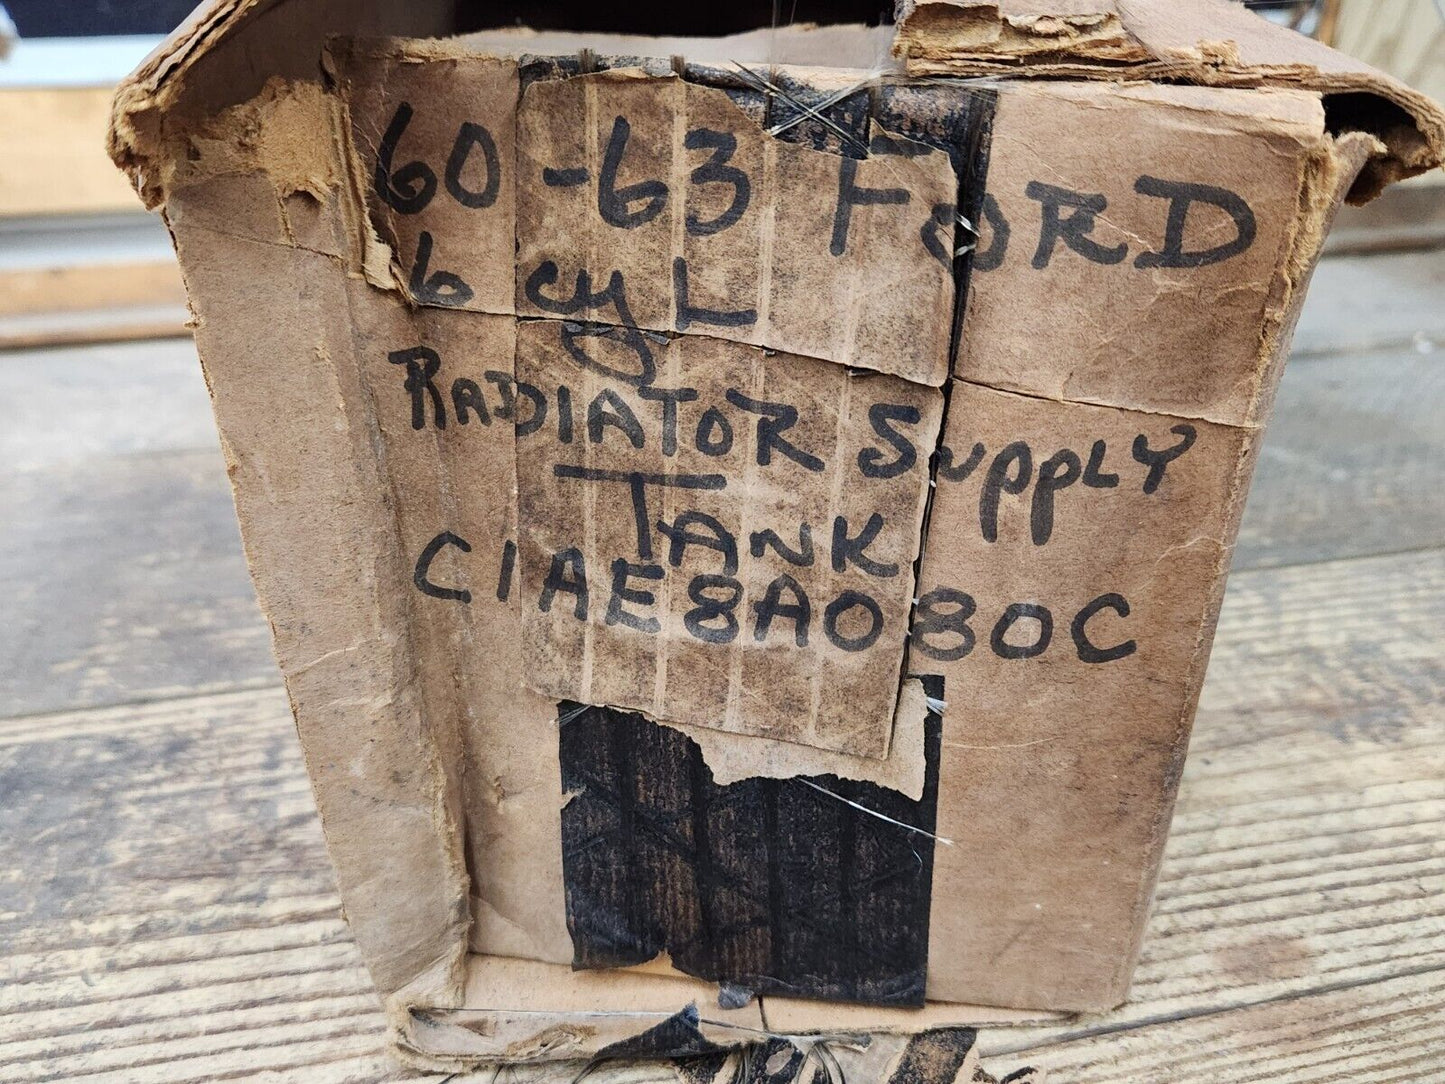 60-63 FORD
6 cyL
RADIATOR SuppLY
TANK
C1AE8A080C